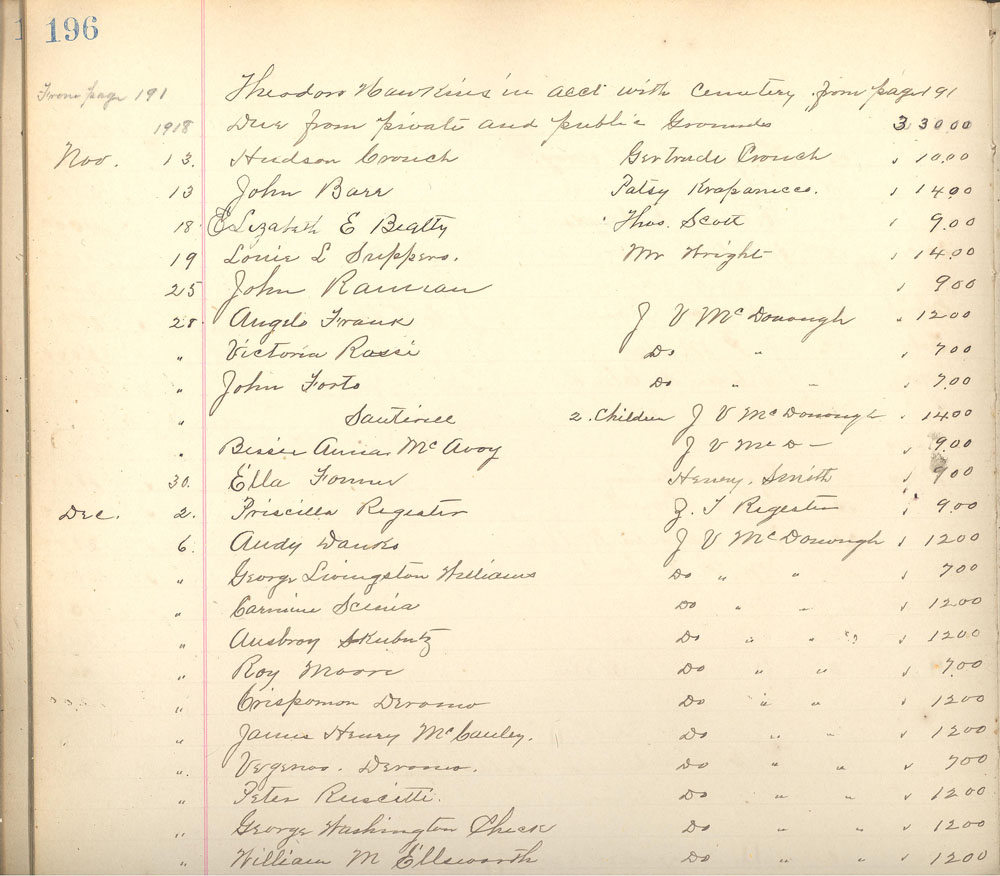 196
From page 191 Theodore Hawkins in acct with Cemetery from page 191
1918 Due from private and public Grounds 330.00
Nov. 13. Hudson Crouch Gertrude Crouch 10.00
13 John Barr Patsy Krapanicco. 14.00
18 Elizabeth E Beatty Thos. Scott 9.00
19 Louie L Suppers. Mr Wright 14.00
25 John Rauman 9.00
28 Angelo Frank J V McDonough 12.00
" Victoria Rossi Do " 7.00
" John Forto Do " " 7.00
" 2. Children J V McDonough 14.00
" Bessie Anna McAvoy J V McD— 9.00
30. Ella Henry Smith 9.00
Dec. 2. Priscilla Register Z. T Register 9.00
6. Andy Danko J V McDonough 12.00
" George Livingston Williams Do " " 7.00
" Carmine Scinia Do " " 12.00
" Ausbroy Skubutz Do " " " 12.00
" Roy Moore Do " " 7.00
" Crispomon Deramo Do " " 12.00
" James Henry McCauley. Do " " 12.00
" Deramo. Do " " 7.00
" Peter Ruscitti. Do " " 12.00
" George Washington Check Do " " 12.00
" William M Ellsworth Do " " 12.00